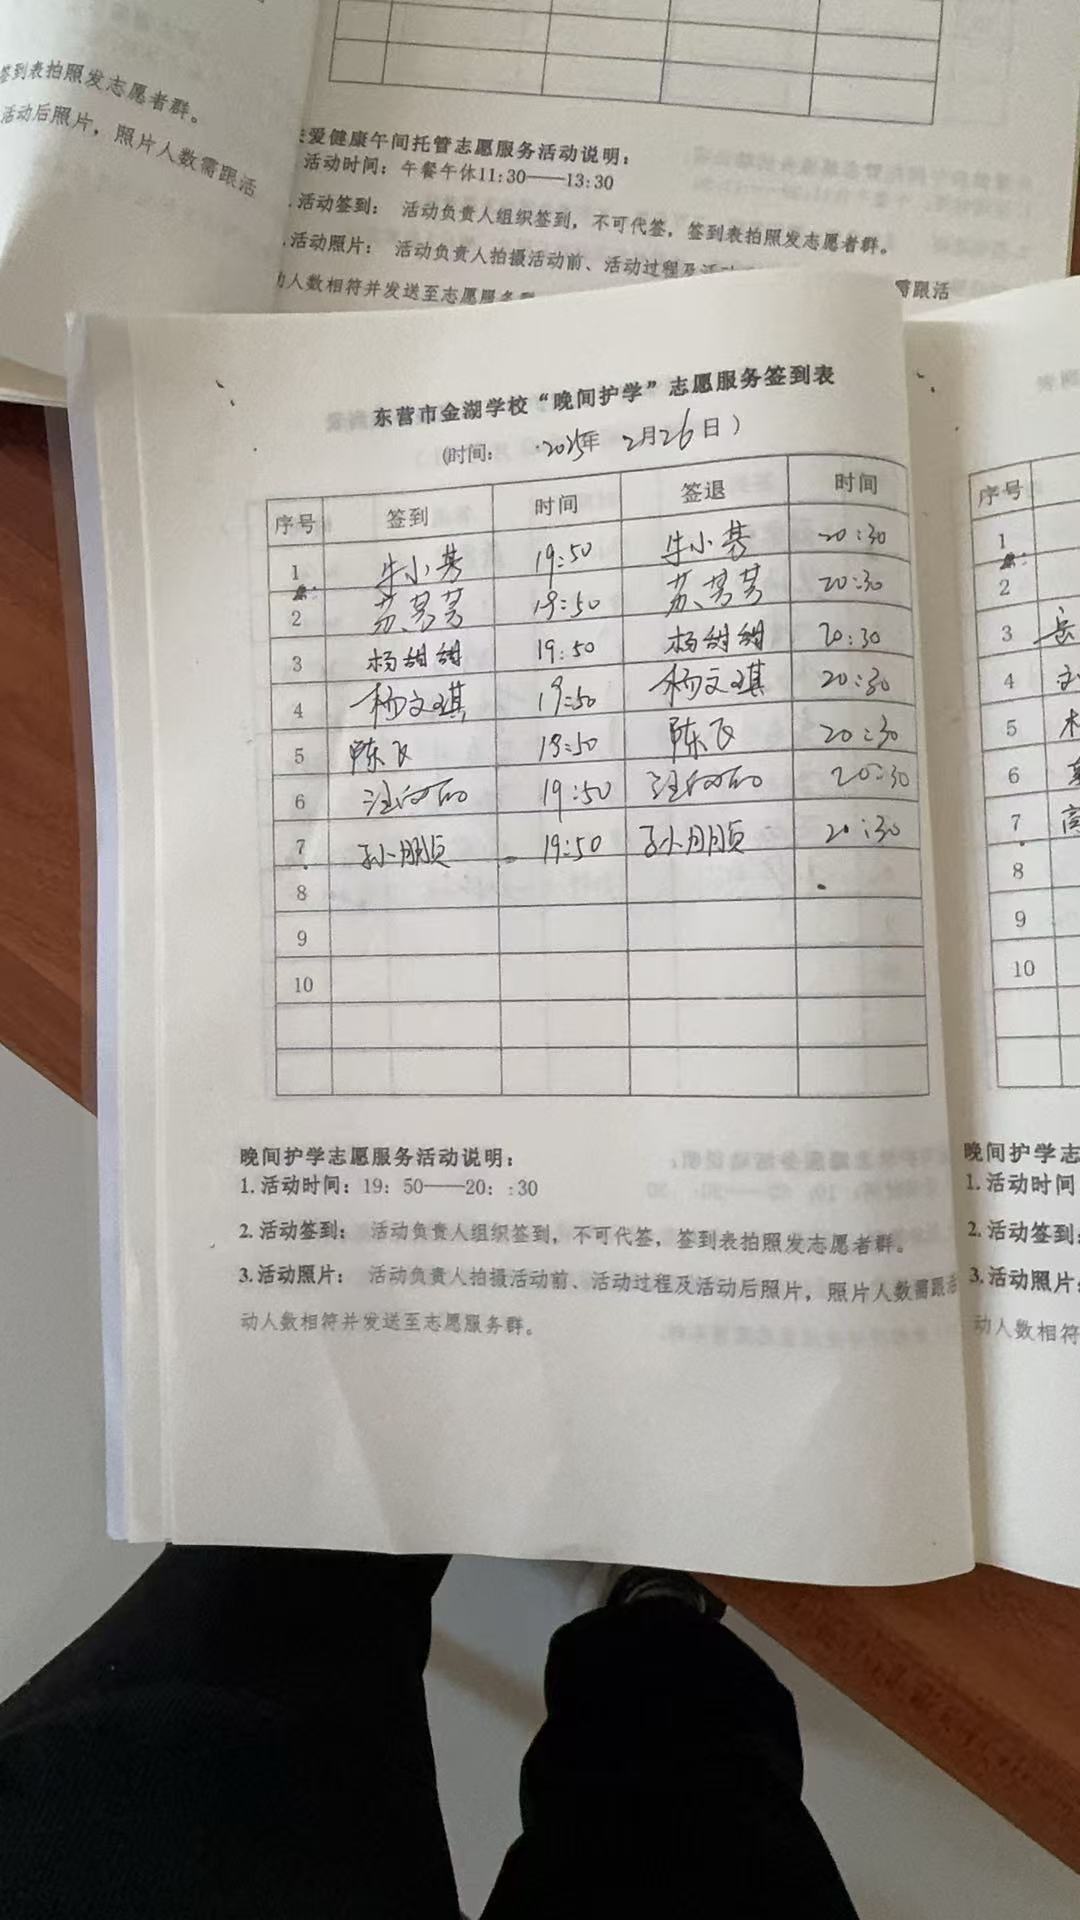 签到表拍照发志愿者群。
活动后照片，照片人数需跟活
关爱健康午间托管志愿服务活动说明：
活动时间：午餐午休11:30——13:30
活动签到： 活动负责人组织签到，不可代签，签到表拍照发志愿者群。
活动照片： 活动负责人拍摄活动前、活动过程及活动
需跟活
动人数相符并发送至志愿服务群
东营市金湖学校“晚间护学”志愿服务签到表
(时间： 2025年 2月26日）
序号 签到 时间 签退 时间
1 牛小芳 19:50 牛小芳 20:30
2 苏芳芳 19:50 苏芳芳 20:30
3 杨甜甜 19:50 杨甜甜 20:30
4 杨文琪 19:50 杨文琪 20:30
5 陈飞 19:50 陈飞 20:30
6 19:50 20:30
7 孙朋贞 19:50 孙朋贞 20:30
8
9
10
晚间护学志愿服务活动说明：
1.活动时间：19：50——20：:30
2.活动签到： 活动负责人组织签到，不可代签，签到表拍照发志愿者群。
3.活动照片： 活动负责人拍摄活动前、活动过程及活动后照片，照片人数需跟活
动人数相符并发送至志愿服务群。
序号
1
2
3 岳
4
5
6
7 高
8
9
10
晚间护学志
1.活动时间
2.活动签到：
3.活动照片：
动人数相符